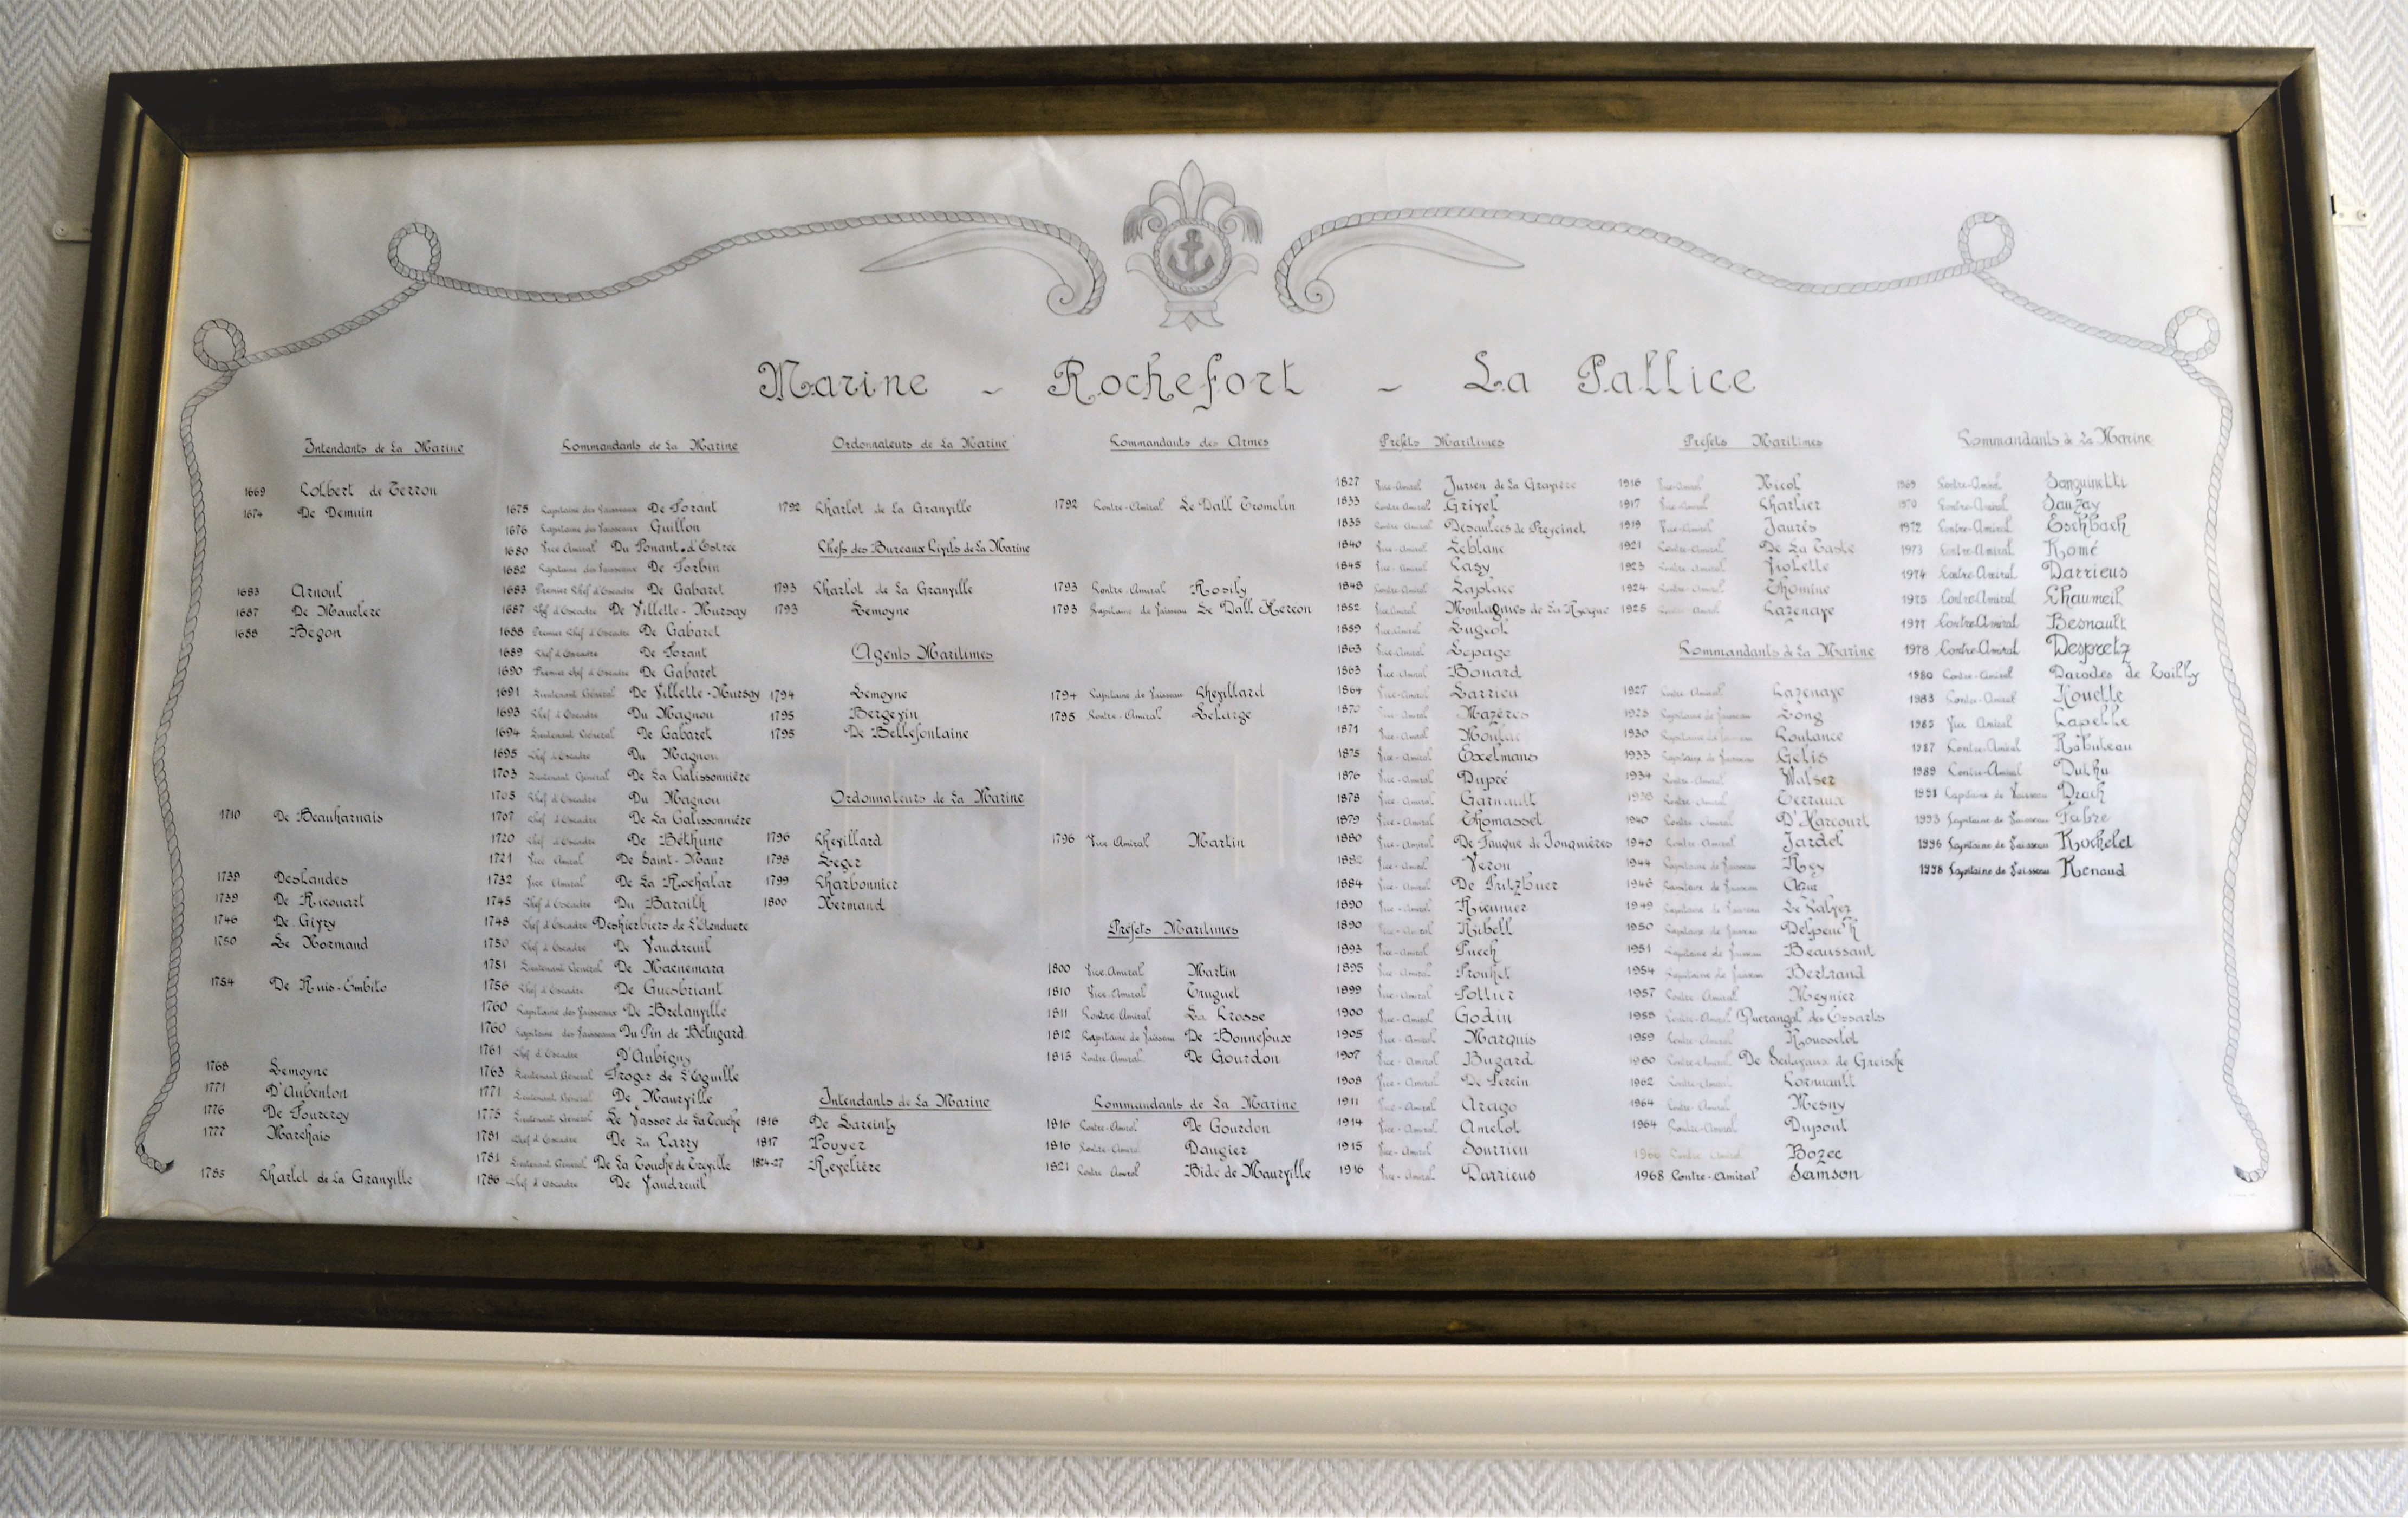 Marine - Rochefort - La Pallice
Intendants de La Marine
1669 Colbert de Terron
1674 De Demuin
1683 Arnoul
1687 De Mauclerc
1688 Begon
1710 De Beauharnais
1739 Deslandes
1739 De Ricouart
1746 De Givry
1750 Le Normand
1754 De Ruis-Embito
1768 Lemoyne
1771 D'Aubenton
1776 De Fourcroy
1777 Marchais
1785 Charlot de La Granville
Commandants de La Marine
1675 Capitaine des Vaisseaux De Forant
1676 Capitaine des Vaisseaux Guillon
1680 Vice Amiral Du Ponant d'Estrée
1682 Capitaine des Vaisseaux De Forbin
1683 Premier Chef d'Escadre De Gabaret
1687 Chef d'Escadre De Villette-Mursay
1688 Premier Chef d'Escadre De Gabaret
1689 Chef d'Escadre De Forant
1690 Premier Chef d'Escadre De Gabaret
1691 Lieutenant Général De Villette-Mursay
1693 Chef d'Escadre Du Magnou
1694 Lieutenant Général De Gabaret
1695 Chef d'Escadre Du Magnou
1703 Lieutenant Général De La Galissonnière
1705 Chef d'Escadre Du Magnou
1707 Chef d'Escadre De La Galissonnière
1720 Chef d'Escadre De Béthune
1721 Vice Amiral De Saint-Maur
1732 Vice Amiral De La Rochalar
1745 Chef d'Escadre Du Barailh
1748 Chef d'Escadre Desherbiers de L'Etenduere
1750 Chef d'Escadre De Vaudreuil
1751 Lieutenant Général De Macnemara
1756 Chef d'Escadre De Guesbriant
1760 Capitaine des Vaisseaux De Bretanville
1760 Capitaine des Vaisseaux Du Pin de Bélugard
1761 Chef d'Escadre D'Aubigny
1763 Lieutenant Général Froger de L'Eguille
1771 Lieutenant Général De Maurville
1775 Lieutenant Général Le Vassor de La Touche
1781 Chef d'Escadre De La Carry
1781 Lieutenant Général De La Touche de Tréville
1786 Chef d'Escadre De Vaudreuil
Ordonnateurs de La Marine
1792 Charlot de La Granville
Chefs des Bureaux Civils de La Marine
1793 Charlot de La Granville
1793 Lemoyne
Agents Maritimes
1794 Lemoyne
1795 Bergevin
1795 De Bellefontaine
Ordonnateurs de La Marine
1796 Chevillard
1798 Leger
1799 Charbonnier
1800 Mermand
Intendants de La Marine
1816 De Lareinty
1817 Pouyer
1824-27 Revelière
Commandants des Armes
1792 Contre-Amiral Le Dall Tromelin
1793 Contre-Amiral Rosily
1793 Capitaine de Vaisseau Le Dall Kereon
1794 Capitaine de Vaisseau Chevillard
1795 Contre-Amiral Lelarge
1796 Vice Amiral Martin
Préfets Maritimes
1800 Vice Amiral Martin
1810 Vice Amiral Truguet
1811 Contre Amiral La Crosse
1812 Capitaine de Vaisseau De Bonnefoux
1815 Contre Amiral De Gourdon
Commandants de La Marine
1816 Contre-Amiral De Gourdon
1816 Contre-Amiral Daugier
1821 Contre Amiral Bidé de Maurville
Préfets Maritimes
1827 Vice-Amiral Jurien de La Gravière
1833 Contre Amiral Grivel
1835 Contre-Amiral Desaulces de Freycinet
1840 Vice-Amiral Leblanc
1845 Vice-Amiral Casy
1848 Contre-Amiral Laplace
1852 Vice Amiral Montagniès de La Roque
1859 Vice-Amiral Lugeol
1863 Vice-Amiral Lepage
1863 Vice-Amiral Bonard
1864 Vice-Amiral Larrieu
1870 Vice-Amiral Mazères
1871 Vice-Amiral Moulac
1875 Vice-Amiral Exelmans
1876 Vice-Amiral Dupré
1878 Vice-Amiral Garnault
1879 Vice-Amiral Thomasset
1880 Vice-Amiral De Fauque de Jonquières
1882 Vice-Amiral Veron
1884 Vice-Amiral De Fritzbuer
1890 Vice-Amiral Rieunier
1890 Vice-Amiral Ribell
1893 Vice-Amiral Puech
1895 Vice-Amiral Prouhet
1899 Vice-Amiral Pottier
1900 Vice-Amiral Godin
1905 Vice-Amiral Marquis
1907 Vice-Amiral Bugard
1908 Vice-Amiral De Percin
1911 Vice-Amiral Arago
1914 Vice-Amiral Amelot
1915 Vice-Amiral Sourrieu
1916 Vice-Amiral Darrieus
Préfets Maritimes
1916 Vice-Amiral Nicol
1917 Vice-Amiral Charlier
1919 Vice-Amiral Jaurès
1921 Contre-Amiral De La Taste
1923 Contre-Amiral Violette
1924 Contre-Amiral Thomine
1925 Contre-Amiral Cazenave
Commandants de La Marine
1927 Contre-Amiral Cazenave
Capitaine de Vaisseau Long
1930 Capitaine de Vaisseau Coutance
1933 Capitaine de Vaisseau Gelis
1934 Contre-Amiral Walser
Contre-Amiral Terraux
1940 Contre-Amiral D'Harcourt
1940 Contre-Amiral Jardel
1944 Capitaine de Vaisseau Rey
1946 Capitaine de Vaisseau
1949 Capitaine de Vaisseau Le Calvez
1950 Capitaine de Vaisseau Delpeuch
1951 Capitaine de Vaisseau Beaussant
1954 Capitaine de Vaisseau Bertrand
1957 Contre-Amiral Meynier
1958 Contre-Amiral Querangal des Essarts
1959 Contre-Amiral Rousselot
1960 Contre-Amiral De Scitivaux de Greische
1962 Contre-Amiral Cornuault
1964 Contre-Amiral Mesny
1964 Contre-Amiral Dupont
1966 Contre Amiral Bozec
1968 Contre-Amiral Samson
Commandants de La Marine
1969 Contre-Amiral Sanguinetti
1970 Contre-Amiral Sauzay
1972 Contre-Amiral Eschbach
1973 Contre-Amiral Romé
1974 Contre-Amiral Darrieus
1975 Contre-Amiral Chaumeil
1977 Contre-Amiral Besnault
1978 Contre-Amiral Despretz
1980 Contre-Amiral Darodes de Tailly
1983 Contre-Amiral Rouelle
1985 Vice Amiral Capelle
1987 Contre-Amiral Rabuteau
1989 Contre-Amiral Duthu
1991 Capitaine de Vaisseau Drach
1993 Capitaine de Vaisseau Fabre
1996 Capitaine de Vaisseau Rochelet
1998 Capitaine de Vaisseau Renaud